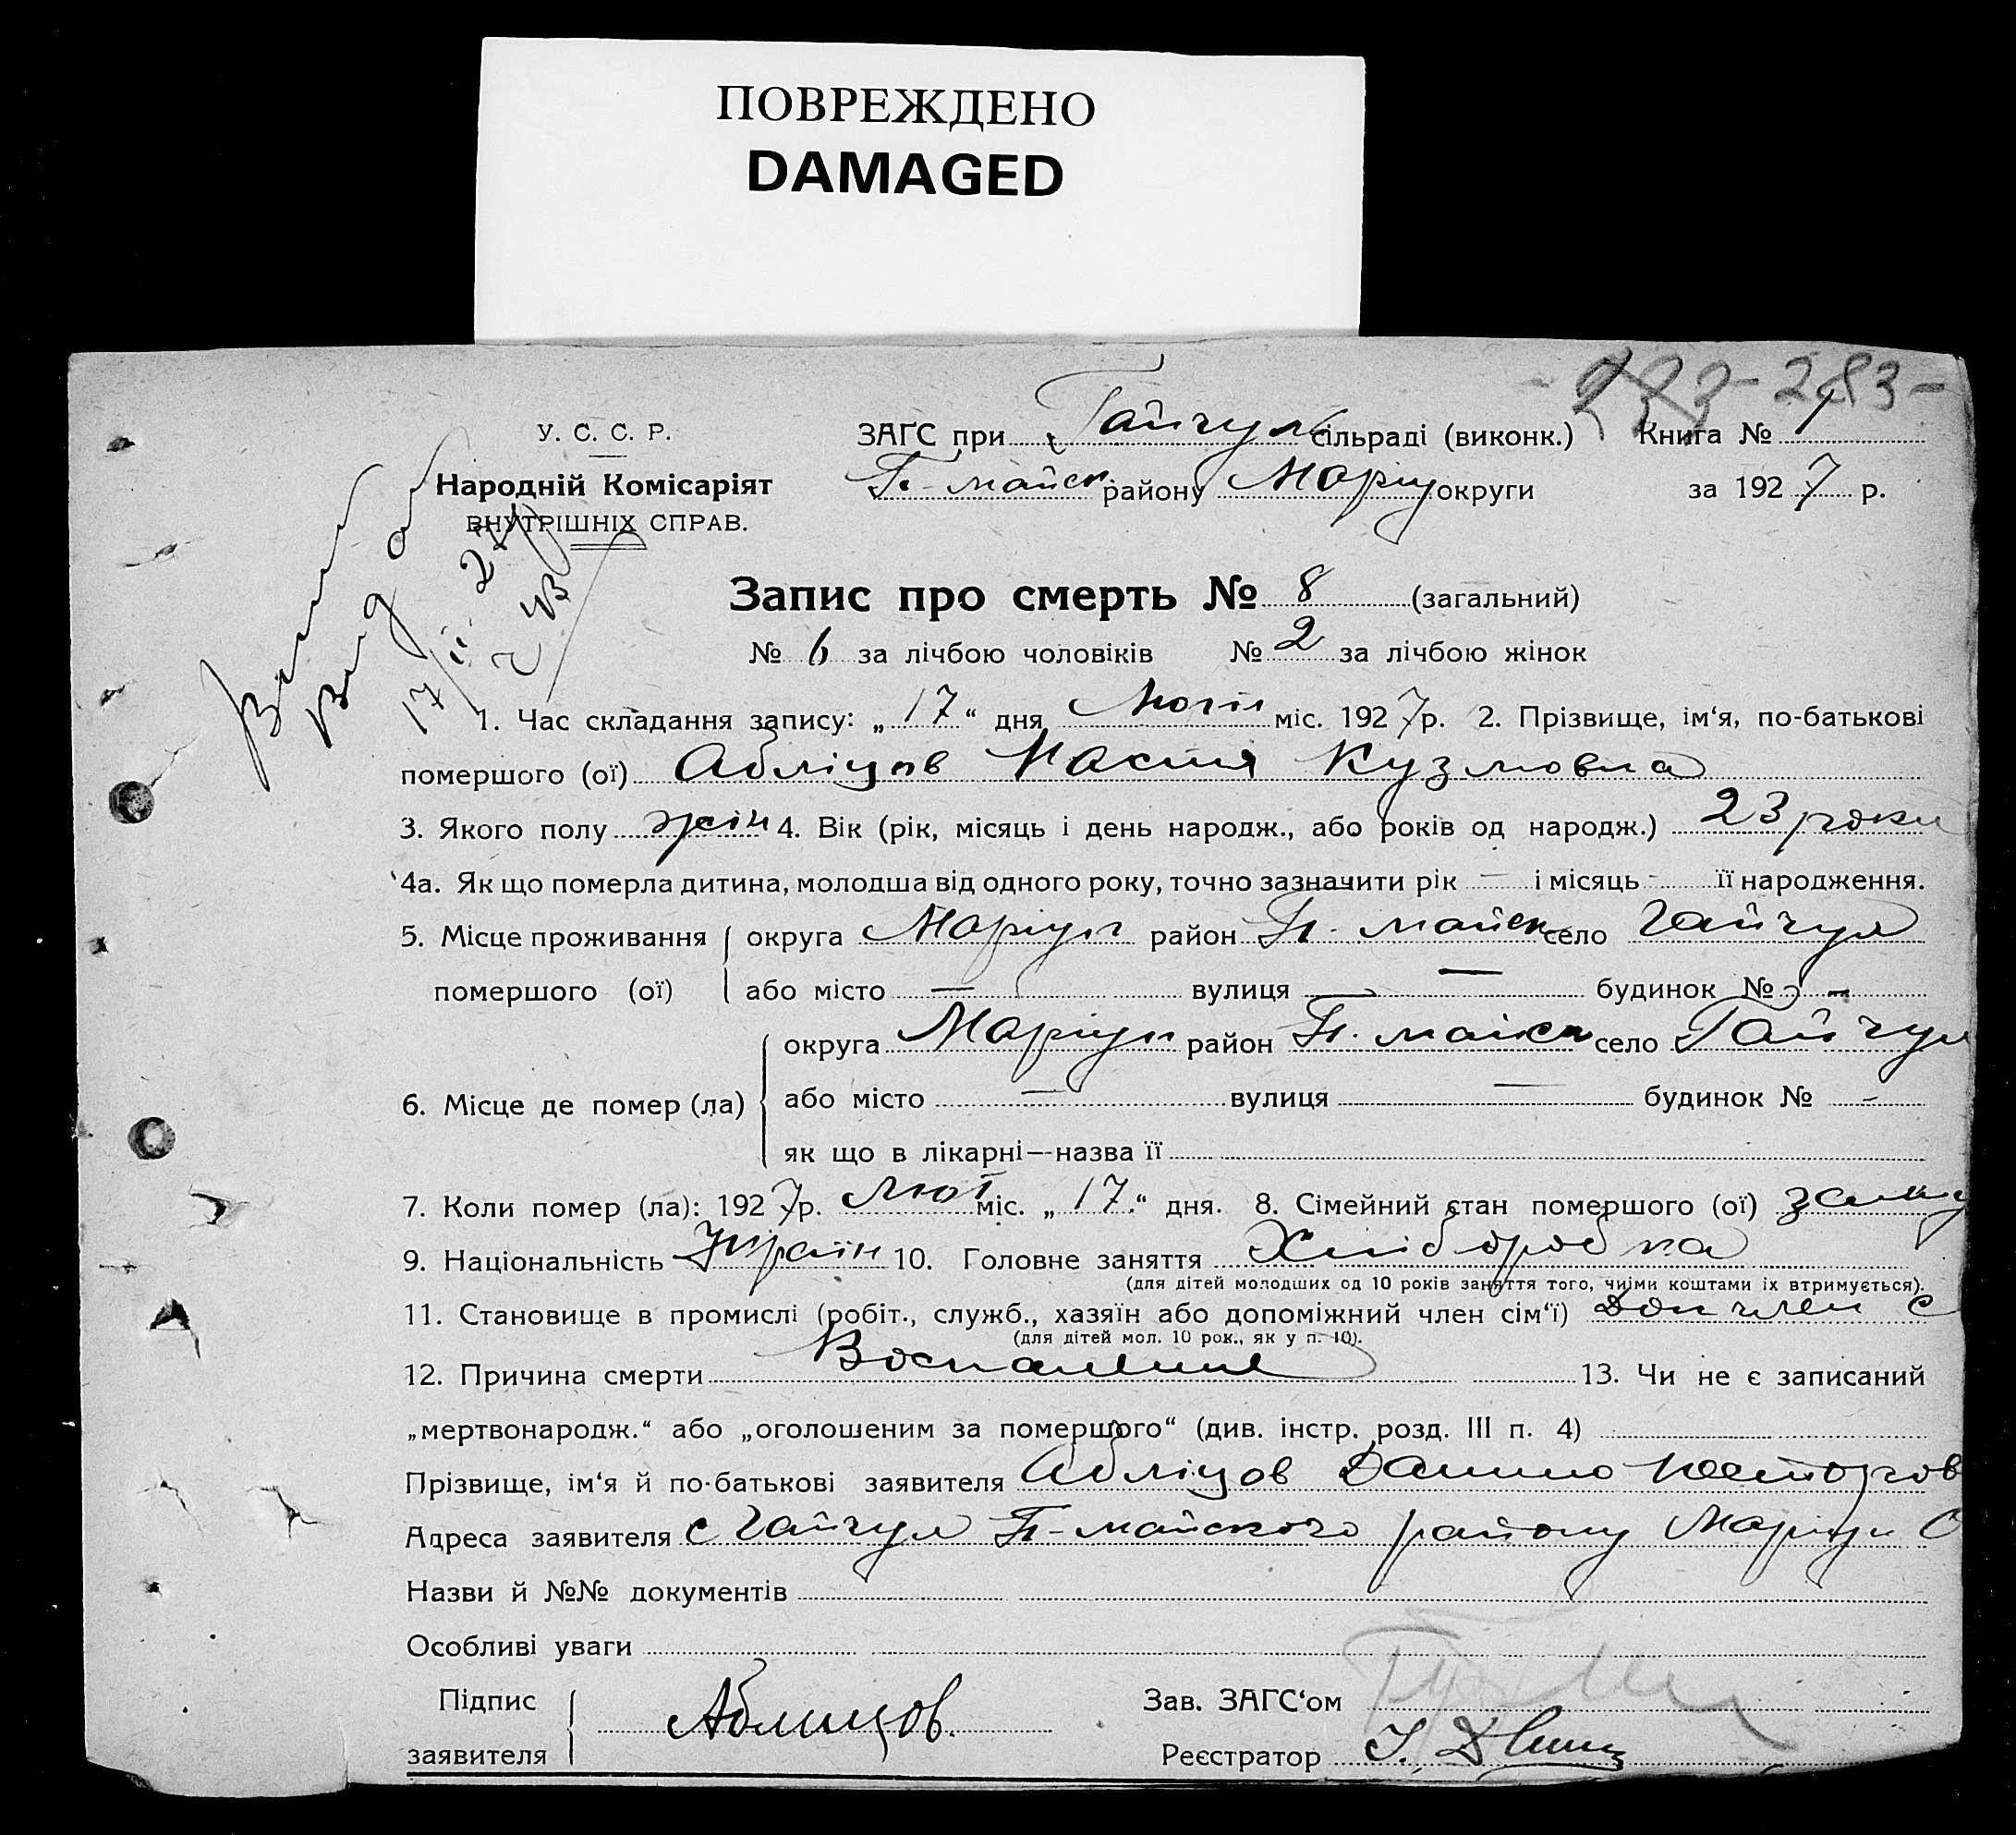 ПОВРЕЖДЕНО
DAMAGED
283-
У. С. С. Р.
Народній Комісаріят
ВНУТРІШНІХ СПРАВ.
ЗАГС при Гайчул сільраді (виконк.) Книга № 1
П.-майск району Маріуп округи за 1927 р.
17/II 27
Запис про смерть № 8 (загальний)
№ 6 за лічбою чоловіків № 2 за лічбою жінок
1. Час складання запису: „17“ дня міс. 1927р. 2. Прізвище, ім‘я, по-батькові
помершого (ої) Абліцов Настя Кузмовна
3. Якого полу жін 4. Вік (рік, місяць і день народж., або років од народж.) 23 роки
4а. Як що померла дитина, молодша від одного року, точно зазначити рік — і місяць - її народження.
5. Місце проживання округа Маріуп район П. майск село Гайчул
помершого (ої) або місто — вулиця — будинок № -
округа Маріуп район П. майск село Гайчул
6. Місце де помер (ла) або місто — вулиця — будинок № -
як що в лікарні—назва її
7. Коли помер (ла): 1927р. Лют міс. „17.“ дня. 8. Сімейний стан помершого (ої) заму
9. Національність Україн 10. Головне заняття Хліборобка
(для дітей молодших од 10 років заняття того, чиїми коштами їх втримується).
11. Становище в промислі (робіт., служб., хазяїн або допоміжний член сім‘ї) доп член с
(для дітей мол. 10 рок., як у п. 10).
12. Причина смерти Воспаление 13. Чи не є записаний
„мертвонародж.“ або „оголошеним за помершого“ (див. інстр. розд. III п. 4)
Прізвище, ім‘я й по-батькові заявителя Абліцов Данило Несторов
Адреса заявителя с Гайчул П-майского району Маріуп О
Назви й №№ документів
Особливі уваги
Підпис заявителя Аблицов.
Зав. ЗАГС‘ом
Реєстратор